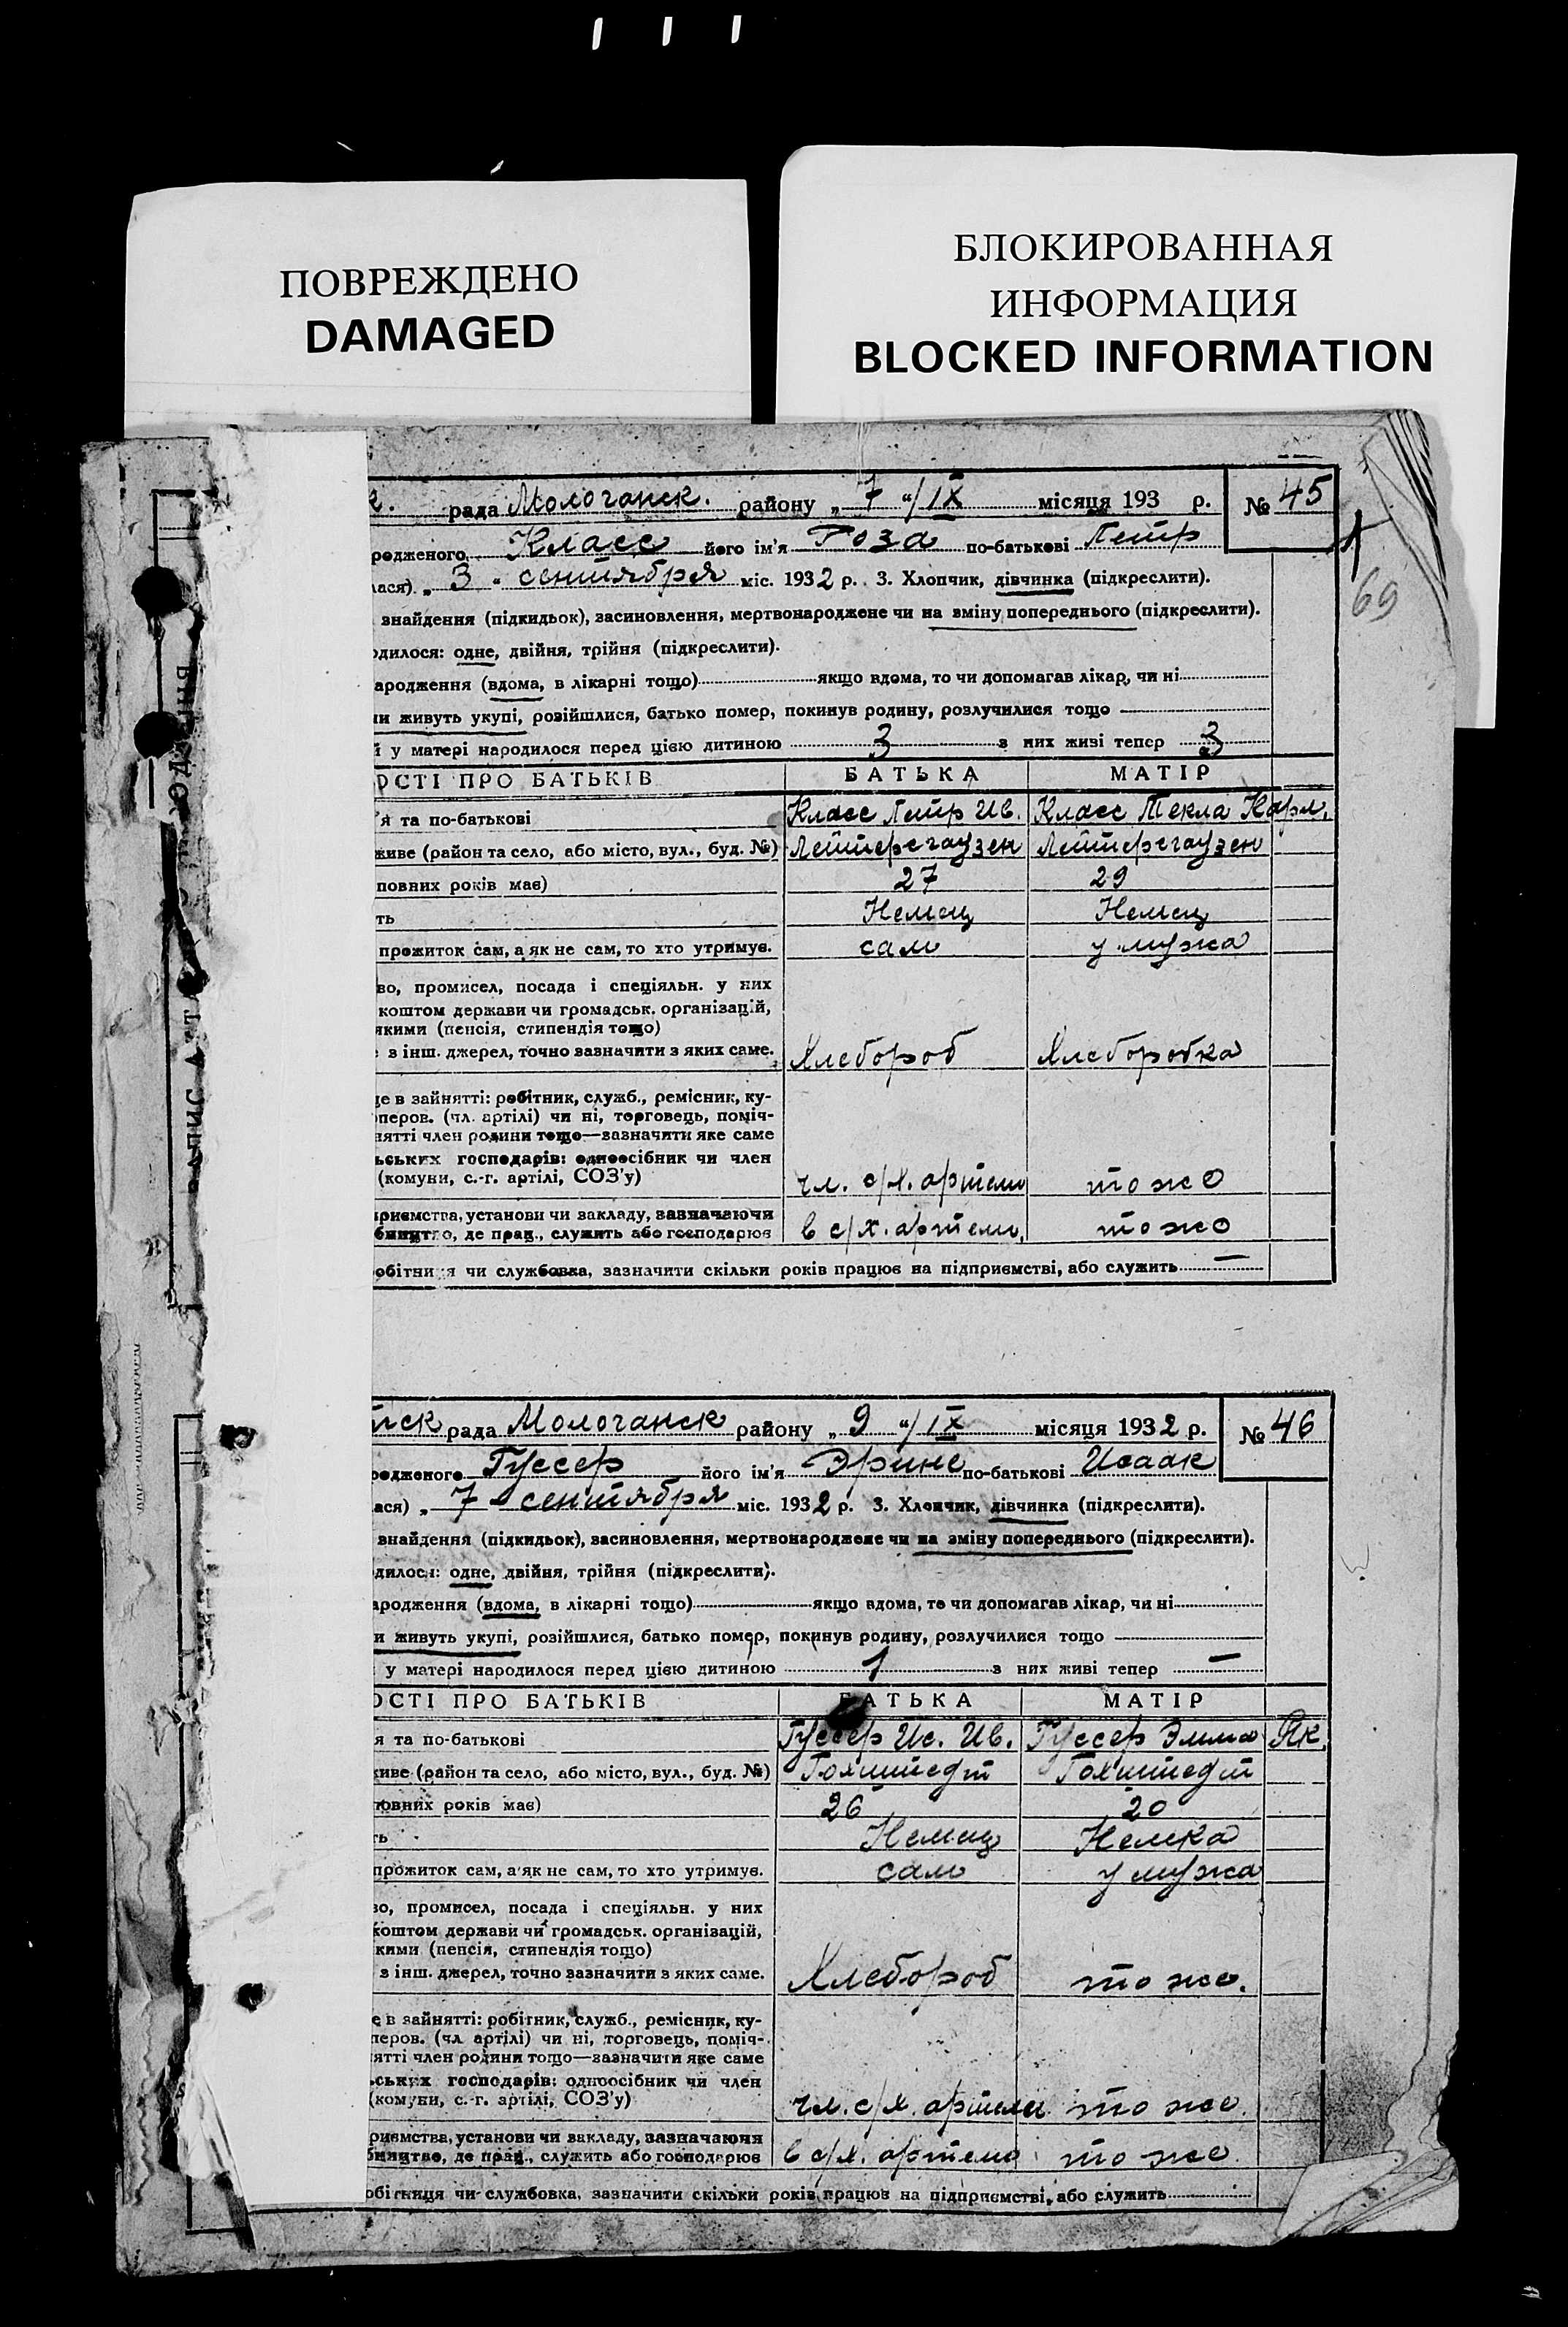 ПОВРЕЖДЕНО
DAMAGED
БЛОКИРОВАННАЯ
ИНФОРМАЦИЯ
BLOCKED INFORMATION
к. рада Молочанск. району „ 7 “/IX місяця 193 р. № 45
родженого Класс його ім'я Роза по-батькові Петр
лася) „ 3 “ сентября міс. 1932 р. 3. Хлопчик, дівчинка (підкреслити).
69
знайдення (підкидьок), засиновлення, мертвонароджене чи на зміну попереднього (підкреслити).
одилося: одне, двійня, трійня (підкреслити).
ародження (вдома, в лікарні тощо) якщо вдома, то чи допомагав лікар, чи ні
чи живуть укупі, розійшлися, батько помер, покинув родину, розлучилися тощо
й у матері народилося перед цією дитиною 3 з них живі тепер 3
ОСТІ ПРО БАТЬКІВ БАТЬКА МАТІР
'я та по-батькові Класс Петр Ив. Класс Текла Карл.
живе (район та село, або місто, вул., буд. №) Лейтерсгаузен Лейтерсгаузен
повних років має) 27 29
ть Немец Немец
прожиток сам, а як не сам, то хто утримує. сам у мужа
во, промисел, посада і спеціяльн. у них
коштом держави чи громадськ. організацій,
якими (пенсія, стипендія тощо)
з інш. джерел, точно зазначити з яких саме. Хлебороб Хлеборобка
це в зайнятті: робітник, служб., ремісник, ку-
оперов. (чл. артілі) чи ні, торговець, поміч-
нятті член родини тощо—зазначити яке саме
ьських господарів: одноосібник чи член
(комуни, с.-г. артілі, СОЗ'у) чл. с/х. артели то же
приємства, установи чи закладу, зазначаючи
бництво, де прац., служить або господарює в с/х. артели, то же
обітниця чи службовка, зазначити скільки років працює на підприємстві, або служить —
тск рада Молочанск району „ 9 “/IX місяця 1932 р. № 46
родженого Гуссер його ім'я Эрине по-батькові Исаак
лася) „ 7 “ сентября міс. 1932 р. 3. Хлопчик, дівчинка (підкреслити).
знайдення (підкидьок), засиновлення, мертвонароджене чи на зміну попереднього (підкреслити).
дилося: одне, двійня, трійня (підкреслити).
ародження (вдома, в лікарні тощо) якщо вдома, то чи допомагав лікар, чи ні
и живуть укупі, розійшлися, батько помер, покинув родину, розлучилися тощо
у матері народилося перед цією дитиною 1 з них живі тепер —
ОСТІ ПРО БАТЬКІВ БАТЬКА МАТІР
я та по-батькові Гуссер Ис. Ив. Гуссер Эмма Як.
живе (район та село, або місто, вул., буд. №) Гохштедт Гохштедт
повних років має) 26 20
ть Немец Немка
прожиток сам, а як не сам, то хто утримує. сам у мужа
во, промисел, посада і спеціяльн. у них
коштом держави чи громадськ. організацій,
кими (пенсія, стипендія тощо)
з інш. джерел, точно зазначити з яких саме. Хлебороб то же.
е в зайнятті: робітник, служб., ремісник, ку-
перов. (чл. артілі) чи ні, торговець, поміч-
ятті член родини тощо—зазначити яке саме
ьських господарів: одноосібник чи член
(комуни, с.-г. артілі, СОЗ'у) чл. с/х. артели то же.
риємства, установи чи закладу, зазначаючи
бництво, де прац., служить або господарює в с/х. артели то же.
обітниця чи службовка, зазначити скільки років працює на підприємстві, або служить